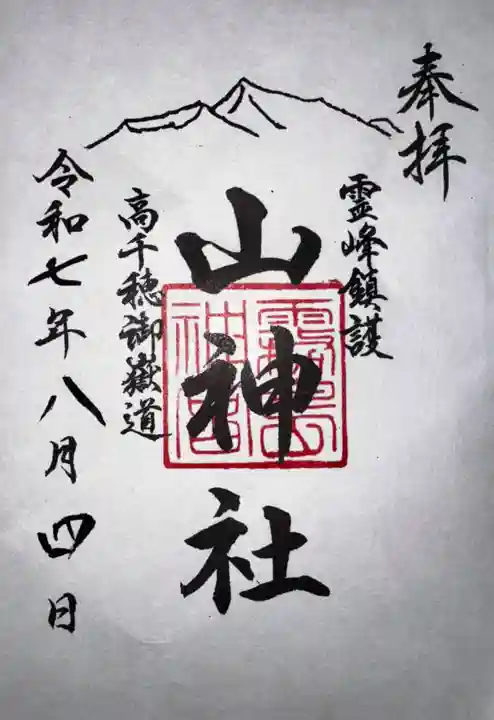 奉拝
霊峰鎮護
山神社
霧島
神宮
高千穂御嶽道
令和七年八月四日